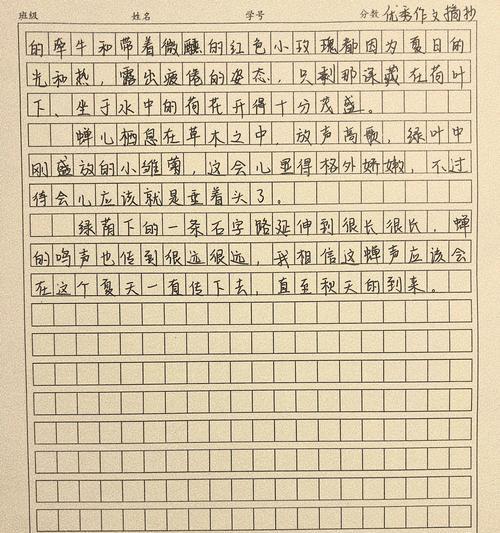 班级 姓名 学号 分数 优秀作文摘抄
的牵牛和带着微醺的红色小玫瑰都因为夏日的
光和热，露出疲倦的姿态，只剩那深藏在荷叶
下、坐于水中的荷花开得十分茂盛。
蝉儿栖息在草木之中，放声高歌，绿叶中
刚盛放的小雏菊，这会儿显得格外娇嫩，不过
待会儿应该就是垂着头了。
绿荫下的一条石字路延伸到很长很长，蝉
的鸣声也传到很远很远，我相信这蝉声应该会
在这个夏天一直传下去，直至秋天的到来。